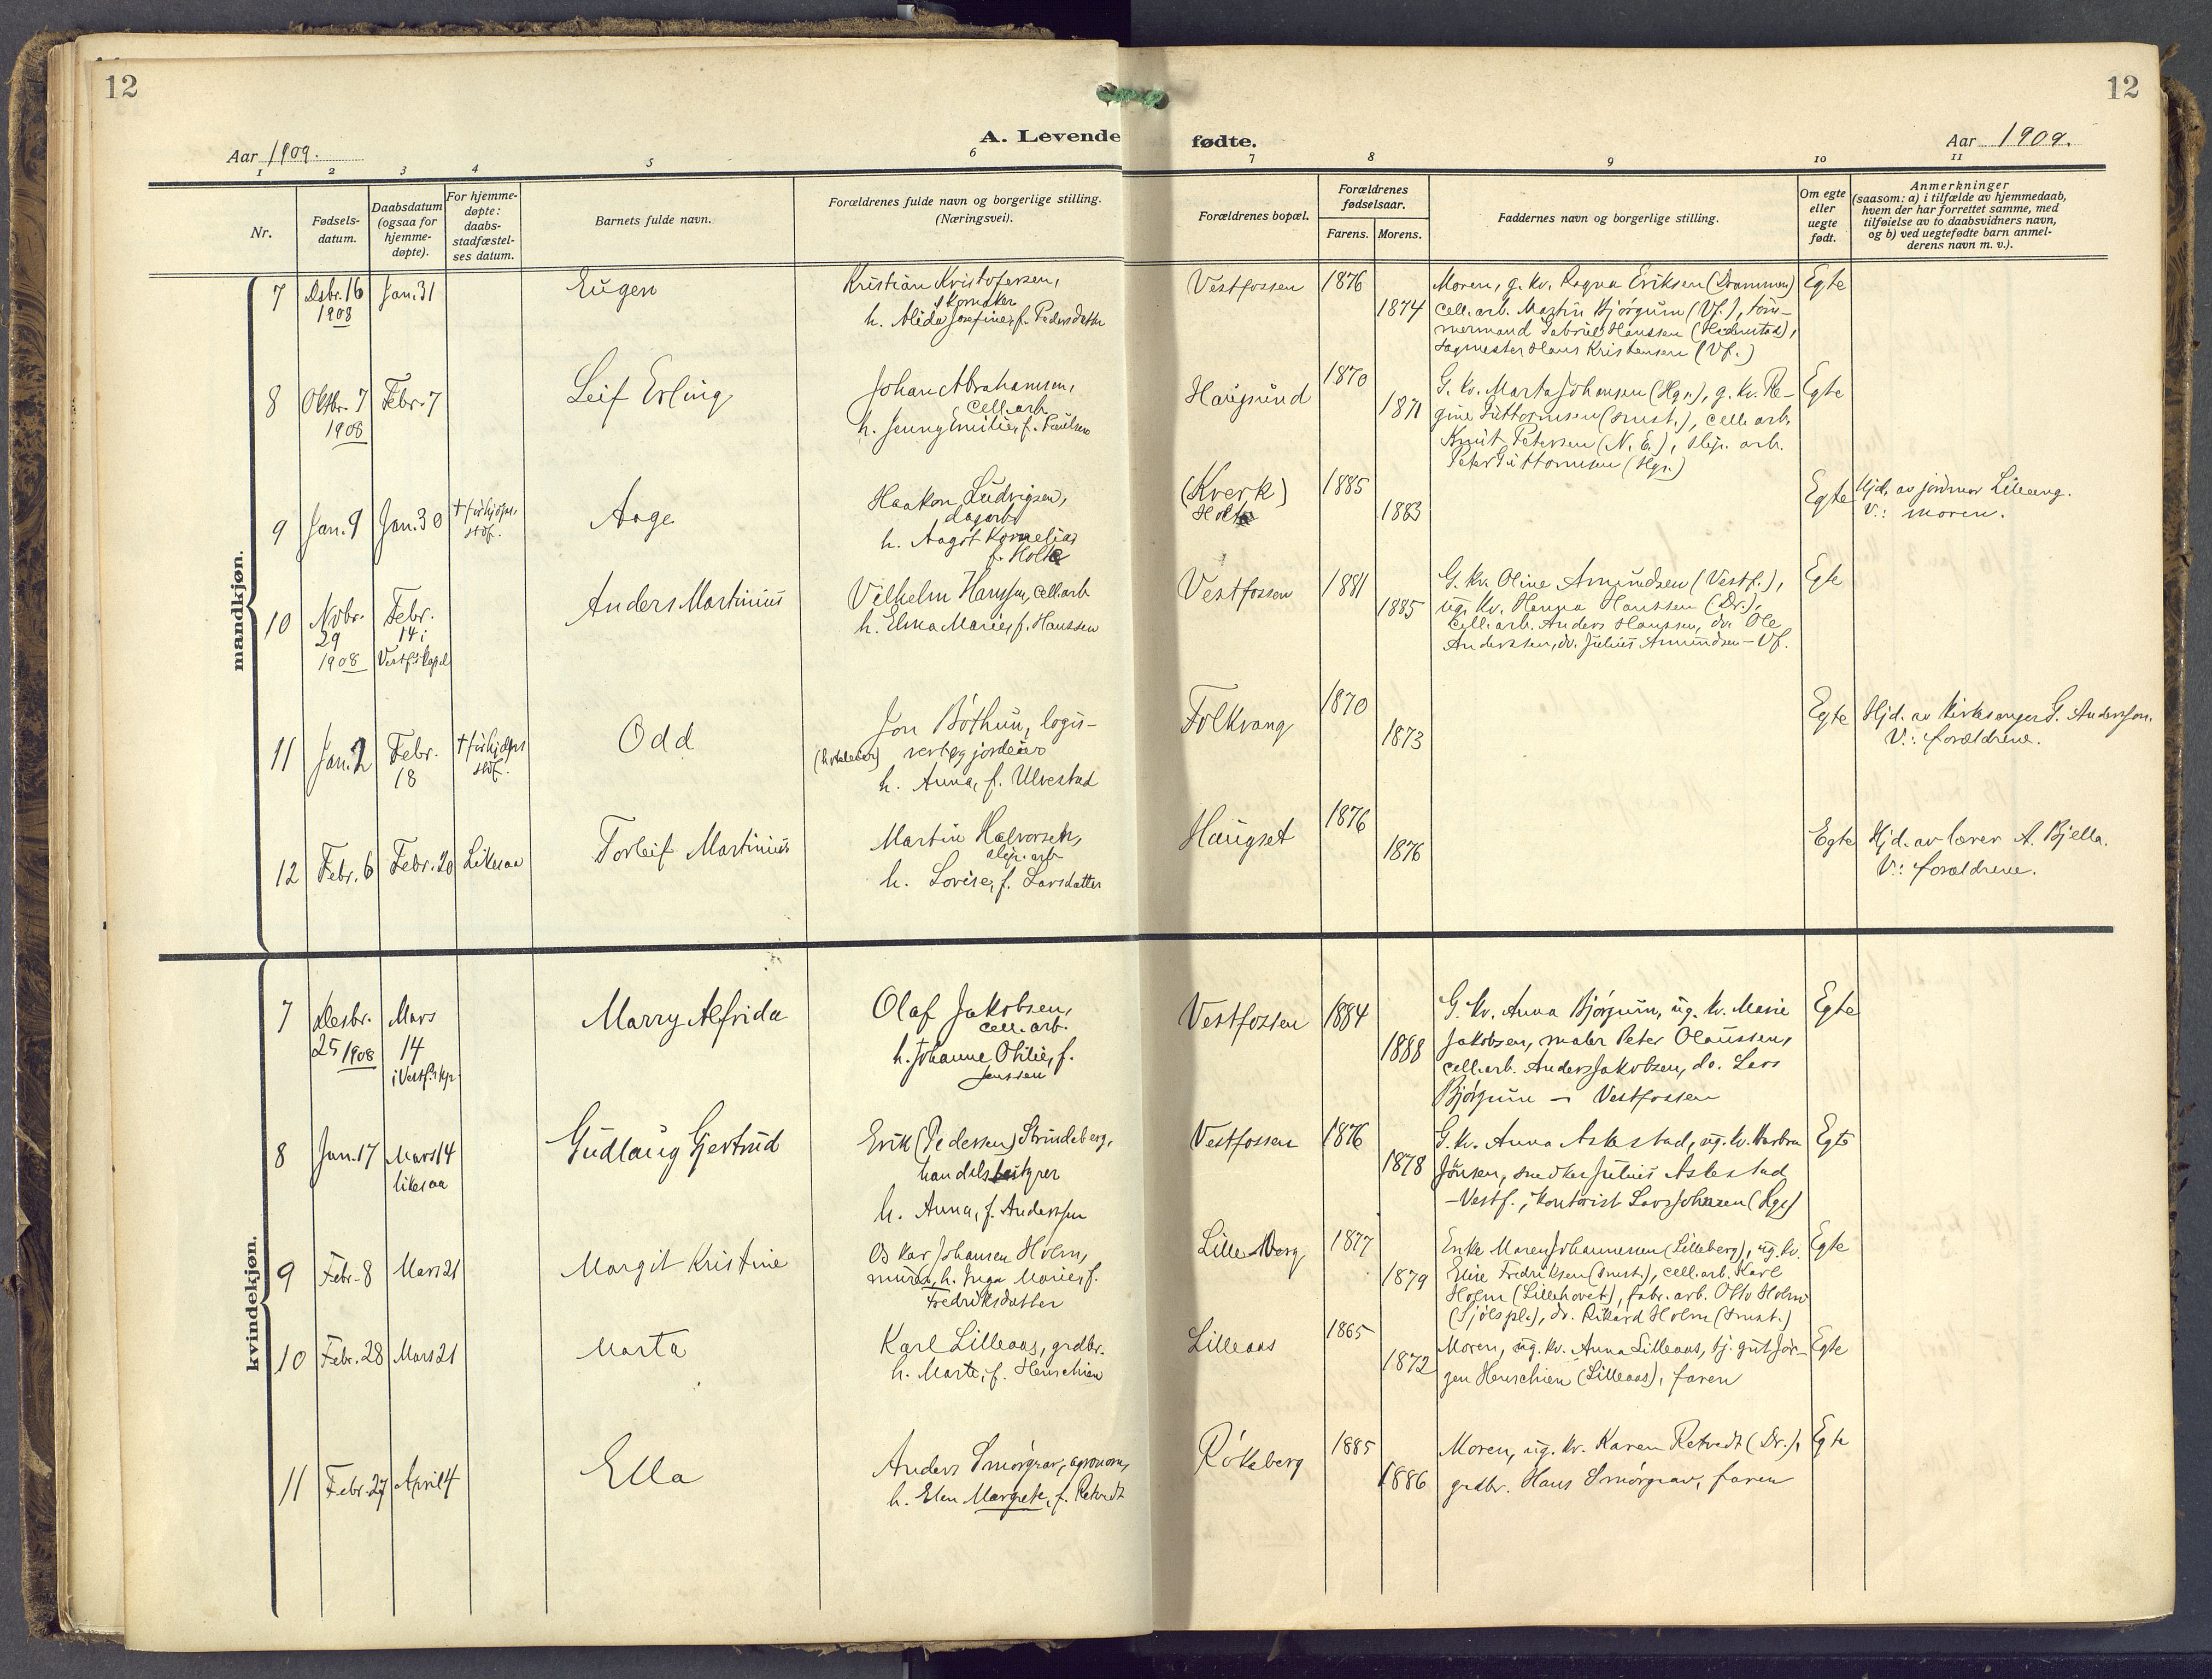 12
12
A. Levende fødte.
Aar 1909.
Aar 1909.
1 2 3 4 5 6 7 8 9 10 11
Nr.
Fødsels-
datum.
Daabsdatum
(ogsaa for
hjemme-
døpte).
For hjemme-
døpte:
daabs-
stadfæstel-
ses datum.
Barnets fulde navn.
Forældrenes fulde navn og borgerlige stilling.
(Næringsvei).
Forældrenes bopæl.
Forældrenes
fødselsaar.
Farens. Morens.
Faddernes navn og borgerlige stilling.
Om egte
eller
uegte
født.
Anmerkninger
(saasom: a) i tilfælde av hjemmedaab,
hvem der har forrettet samme, med
tilføielse av to daabsvidners navn,
og b) ved uegtefødte barn anmel-
derens navn m. v.).
mandkjøn.
7
Dsbr. 16
1908
Jan. 31
Eugen
Kristian Kristofersen,
skomaker
h. Alida Josefine, f. Pedersdatter
Vestfossen
1876
1874
Moren, g. kv. Ragna Eriksen (Drammen)
cell. arb. Martin Bjørgum (Vf.), tøm-
mermand Gabriel Hanssen (Hedenstad),
sagmester Hans Kristensen (Vf.)
Egte
8
Oktbr. 7
1908
Febr. 7
Leif Erling
Johan Abrahamsen,
cell. arb.
h. Jenny Emilie, f. Paulsen
Haugsund
1870
1871
G. kv. Marta Johansen (Hgs.), g. kv. Re-
gine Guttormsen (smst.), cell. arb.
Knut Petersen (N. E.), slip. arb.
Peter Guttormsen (Hgs.)
Egte
9
Jan. 9
Jan. 30
Aage
Haakon Ludvigsen,
dagarb.
h. Aagot Kornelia,
f. Holte
(Kverk)
Holte
1885
1883
Egte
Hjd. av jordmor Lilleeng.
V.: moren.
10
Nvbr.
29
1908
Febr.
14 i
Vestf.s kapel
Anders Martinius
Vilhelm Hanssen, cell. arb
h. Elma Marie, f. Hanssen
Vestfossen
1881
1885
G. kv. Oline Amundsen (Vestf.),
ug. kv. Hanna Hanssen (Dr.),
cell. arb. Anders Hanssen, do. Ole
Anderssen, do. Julius Amundsen – Vf.
Egte
11
Jan. 2
Febr.
18
Odd
Jon Bøthun, logis-
vert og jordeier
h. Anna, f. Ulvestad
Folkvang
1870
1873
Egte
Hjd. av kirkesanger G. Anderssen.
V.: forældrene.
12
Febr. 6
Febr. 20
Likesaa
Torleif Martinius
Martin Halvorsen,
slip. arb
h. Lovise, f. Larsdatter
Haugset
1876
1876
Egte
Hjd. av lærer A. Bjella.
V.: forældrene.
kvindekjøn.
7
Desbr.
25 1908
Mars
14
i Vestf.s kp.
Marry Alfrida
Olaf Jakobsen,
cell. arb.
h. Johanne Otilie, f.
Jenssen
Vestfossen
1884
1888
G. kv. Anna Bjørgum, ug. kv. Marie
Jakobsen, maler Peter Olaussen,
cell. arb. Anders Jakobsen, do. Lars
Bjørgum – Vestfossen
Egte
8
Jan. 17
Mars 14
likesaa
Gudlaug Gjertrud
Erik (Pedersen) Strindeberg,
handelsbestyrer
h. Anna, f. Anderssen
Vestfossen
1876
1878
G. kv. Anna Askestad, ug. kv. Barbra
Jonsen, snedker Julius Askestad
– Vestf., kontorist Lars Johnsen (Hgs)
Egte
9
Febr. 8
Mars 21
Margit Kristine
Oskar Johansen Holm,
murer, h. Inga Marie, f.
Fredriksdatter
Lilleberg
1877
1879
Enke Maren Johannessen (Lilleberg), ug. kv.
Elise Fredriksen (smst.), cell. arb. Karl
Holm (Lillehovet), fabr. arb. Otto Holm
(Sjølspl.), do. Rikard Holm (smst.)
Egte
10
Febr. 28
Mars 21
Marta
Karl Lilleaas, grdbr.
h. Marte, f. Henschien
Lilleaas
1865
1872
Moren, ug. kv. Anna Lilleaas, tj. gut Jør-
gen Henschien (Lilleaas), faren
Egte
11
Febr. 27
April 4
Ella
Anders Smørgrav, agronom,
h. Elen Margrete, f. Retvedt
Røkeberg
1885
1886
Moren, ug. kv. Karen Retvedt (Dr.),
grdbr. Hans Smørgrav, faren
Egte